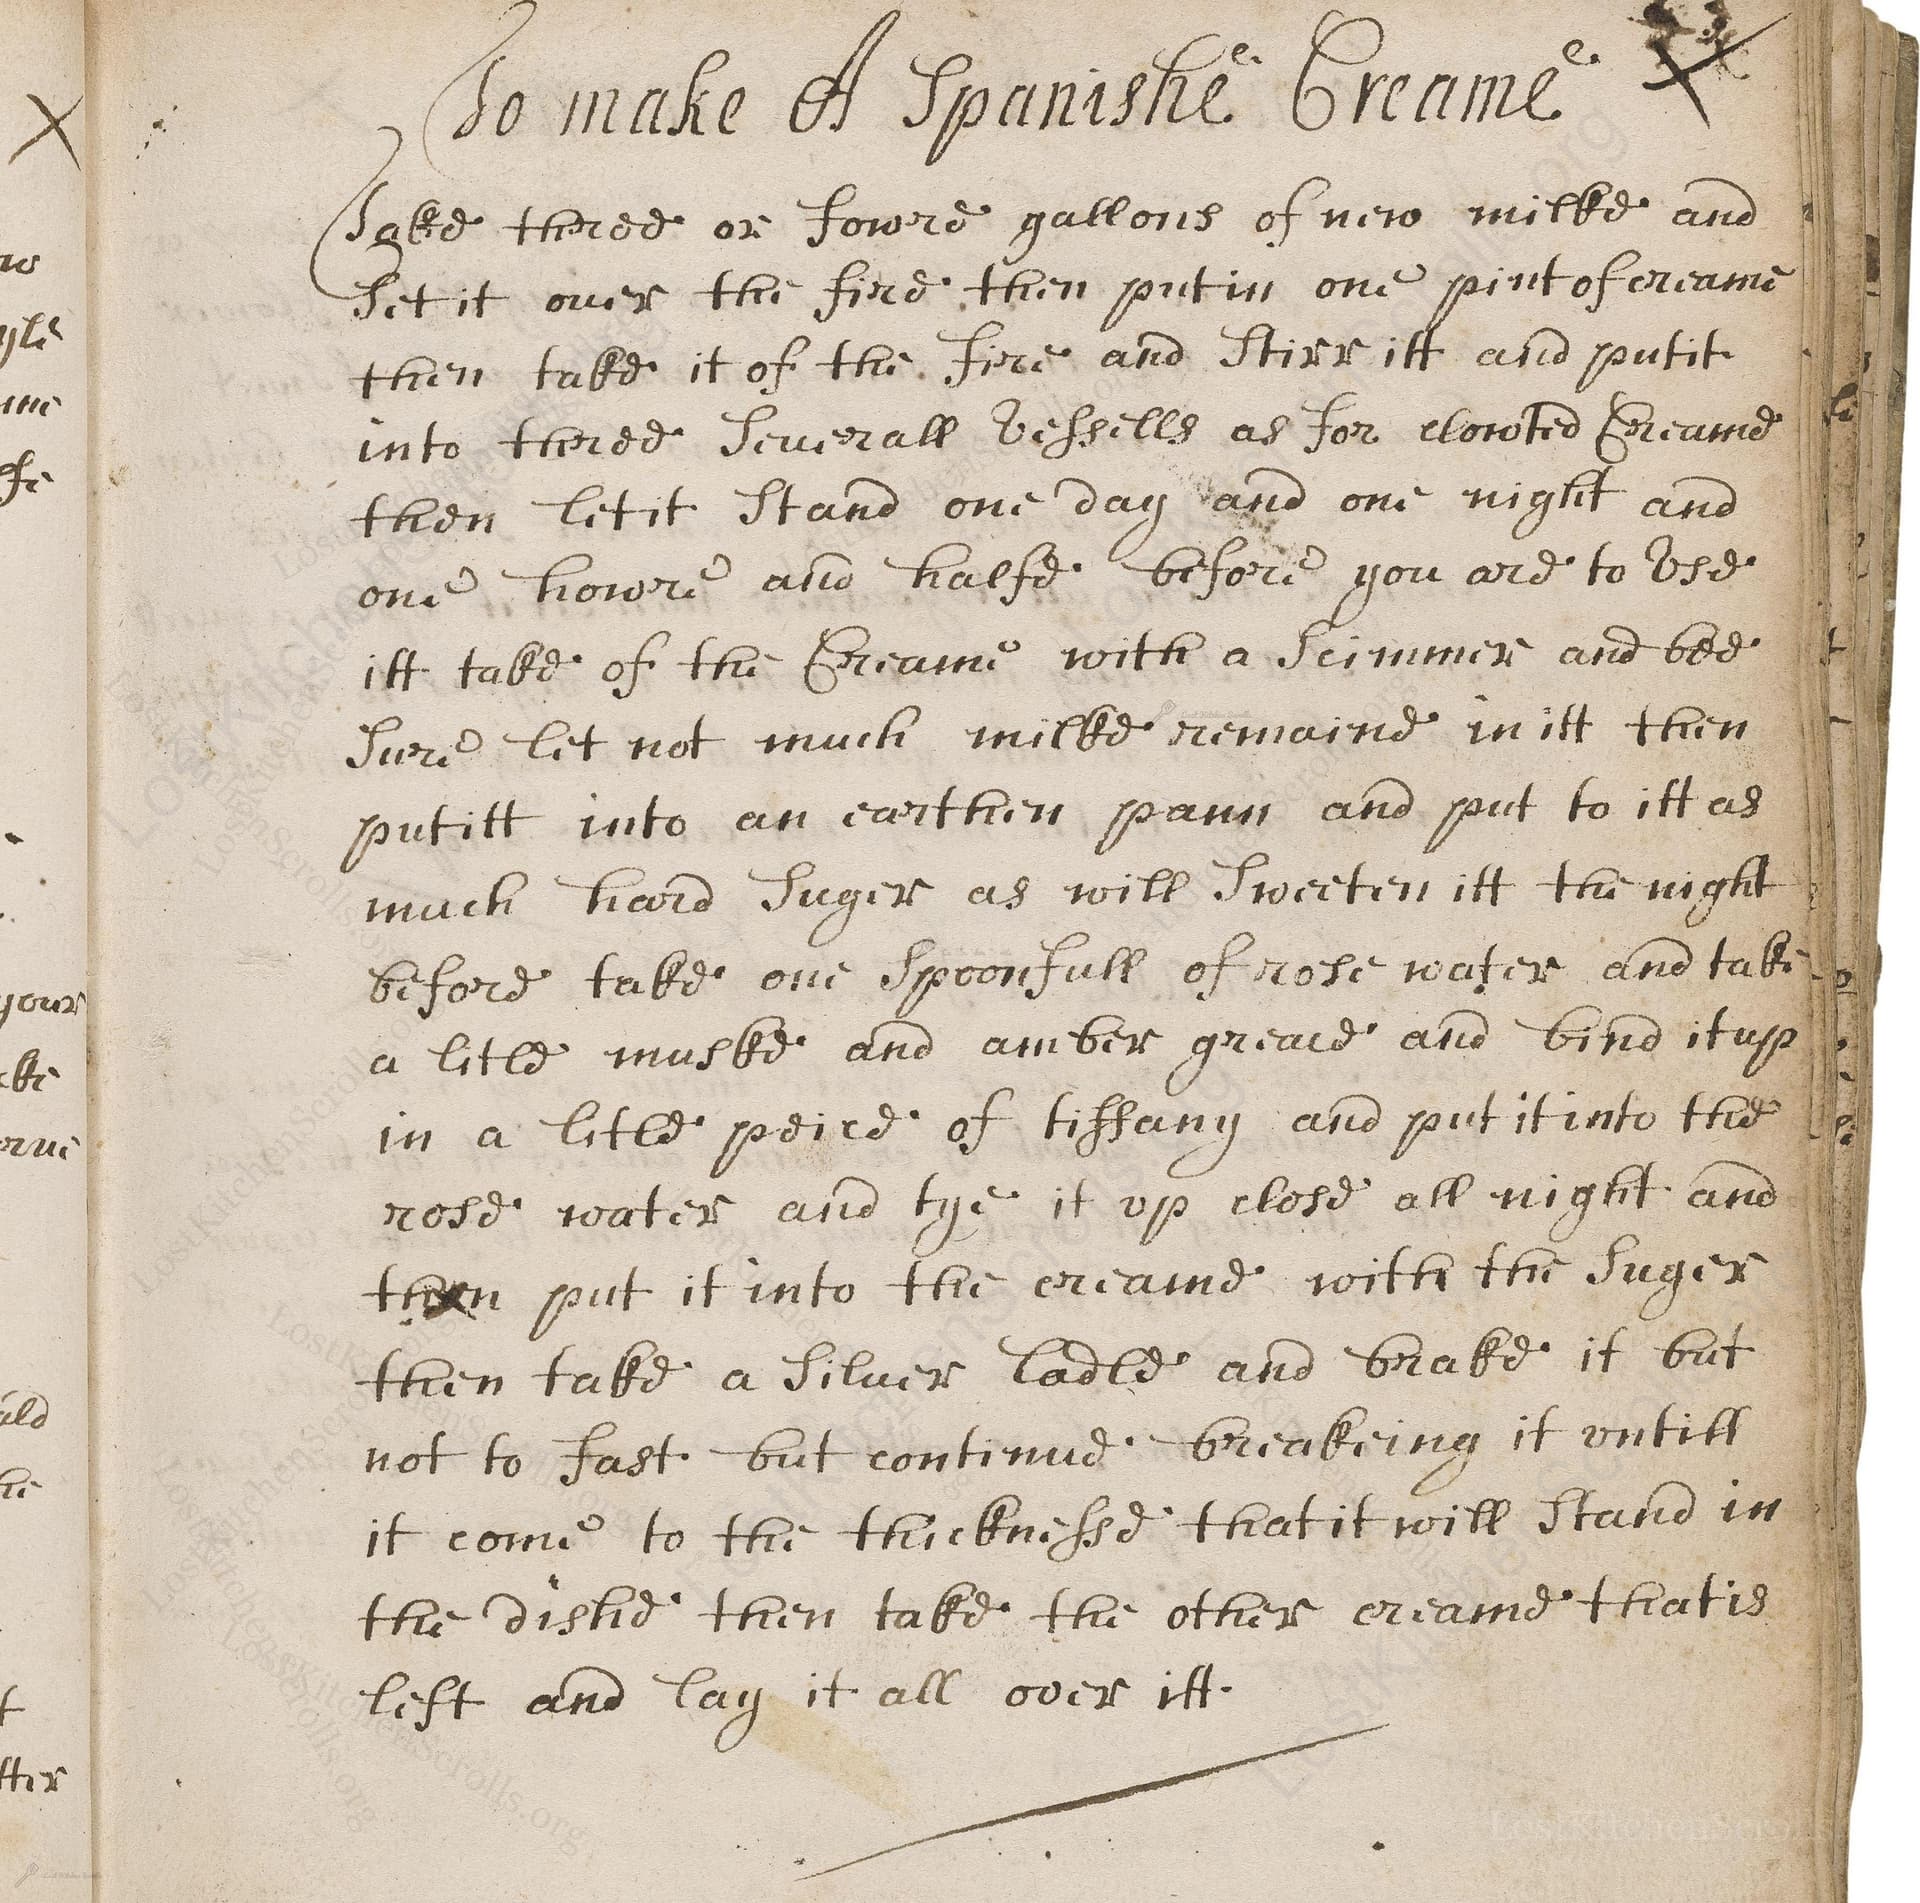 To make A Spanishe Creame
Take three or fowre gallons of new milke and
Set it ouer the fire then put in one pint of creame
then take it of the fire and Stirr itt and put it
into three Seuerall Vessells as for clowted Creame
then let it Stand one day and one night and
one howre and halfe before you are to Vse
itt take of the Creame with a Scimmer and bee
Sure let not much milke remaine in itt then
put itt into an earthen pann and put to itt as
much hard Suger as will Sweeten itt the night
before take one Spoonfull of rose water and take
a litle muske and amber greace and bind it up
in a litle peice of tiffany and put it into the
rose water and tye it vp close all night and
then put it into the creame with the Suger
then take a Siluer ladle and brake it but
not to fast but continue breakeing it vntill
it come to the thicknesse that it will Stand in
the dishe then take the other creame that is
left and lay it all over itt